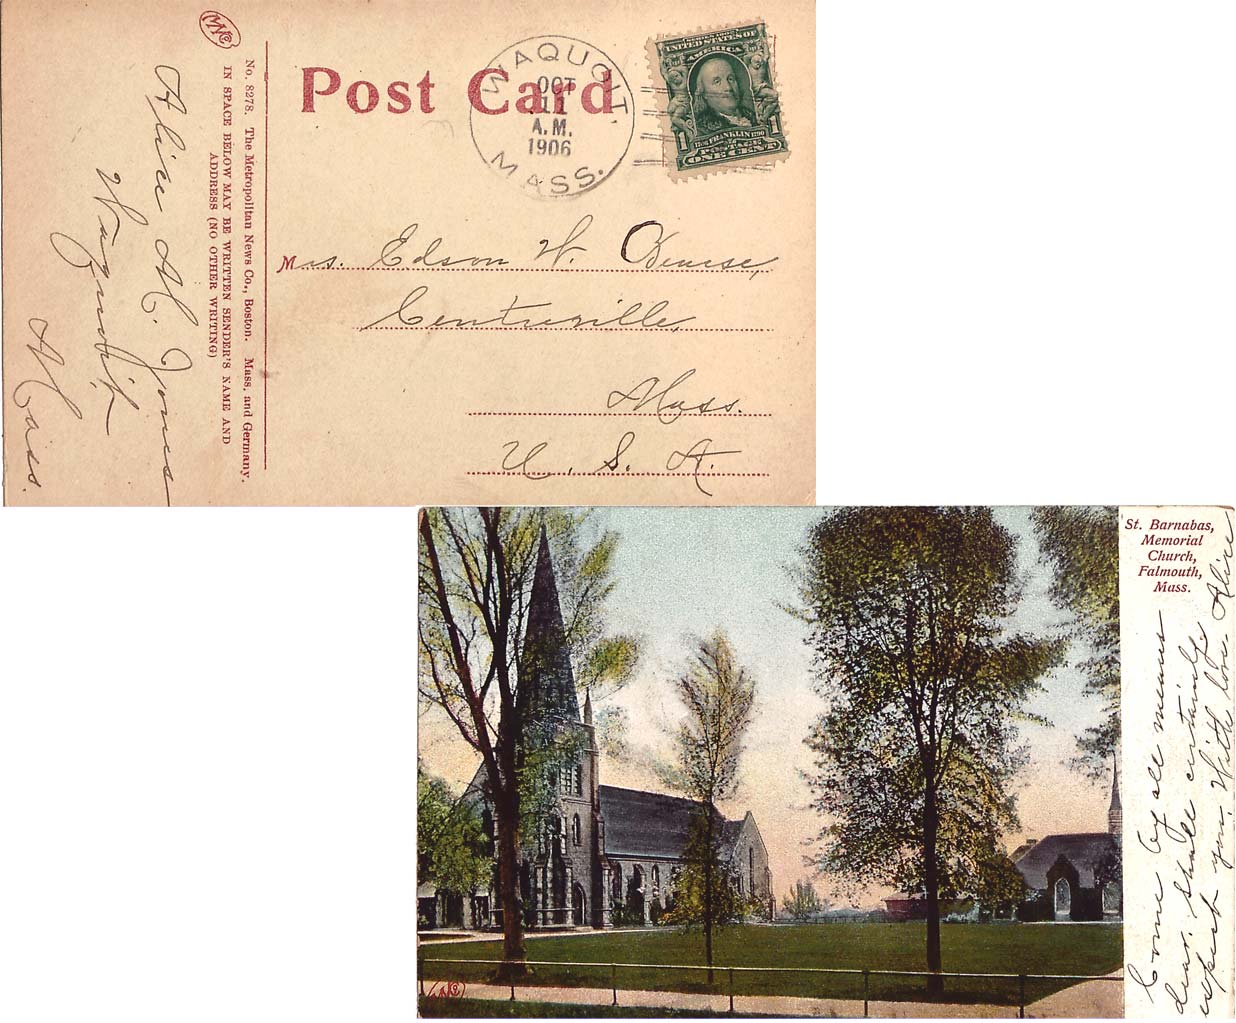 MNCo
No. 8278. The Metropolitan News Co., Boston. Mass, and Germany.
IN SPACE BELOW MAY BE WRITTEN SENDER'S NAME AND
ADDRESS (NO OTHER WRITING)
Alice M. Jones
Waquoit,
Mass.
Post Card
WAQUOIT,
OCT
11
A.M.
1906
MASS.
UNITED STATES OF
AMERICA
1 FRANKLIN 1790 1
POSTAGE
ONE CENT
Mrs. Edson W.
Centreville,
Mass.
U. S. A.
St. Barnabas,
Memorial
Church,
Falmouth,
Mass.
Come by all means
dear. Shall certainly
expect you. With love Alice
MNCo